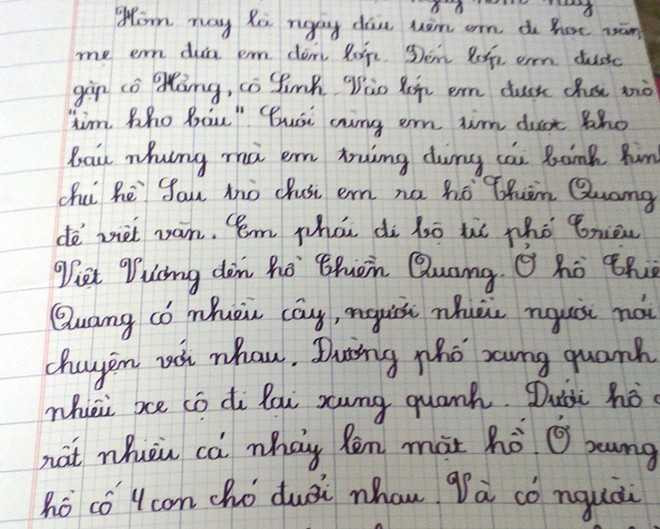 Hôm nay là ngày đầu tiên em đi học văn,
mẹ em đưa em đến lớp. Đến lớp em được
gặp cô Hằng, cô Linh. Vào lớp em được chơi trò
"tìm kho báu". Cuối cùng em tìm được kho
báu nhưng mà em trúng đúng cái bánh hình
chú hề. Sau trò chơi em ra hồ Thiền Quang
để viết văn. Em phải đi bộ từ phố Triệu
Việt Vương đến hồ Thiền Quang. Ở hồ Thiề
Quang có nhiều cây, người nhiều người nói
chuyện với nhau. Đường phố xung quanh
nhiều xe cộ đi lại xung quanh. Dưới hồ
rất nhiều cá nhảy lên mặt hồ. Ở xung
hồ có 4 con chó đuổi nhau. Và có người